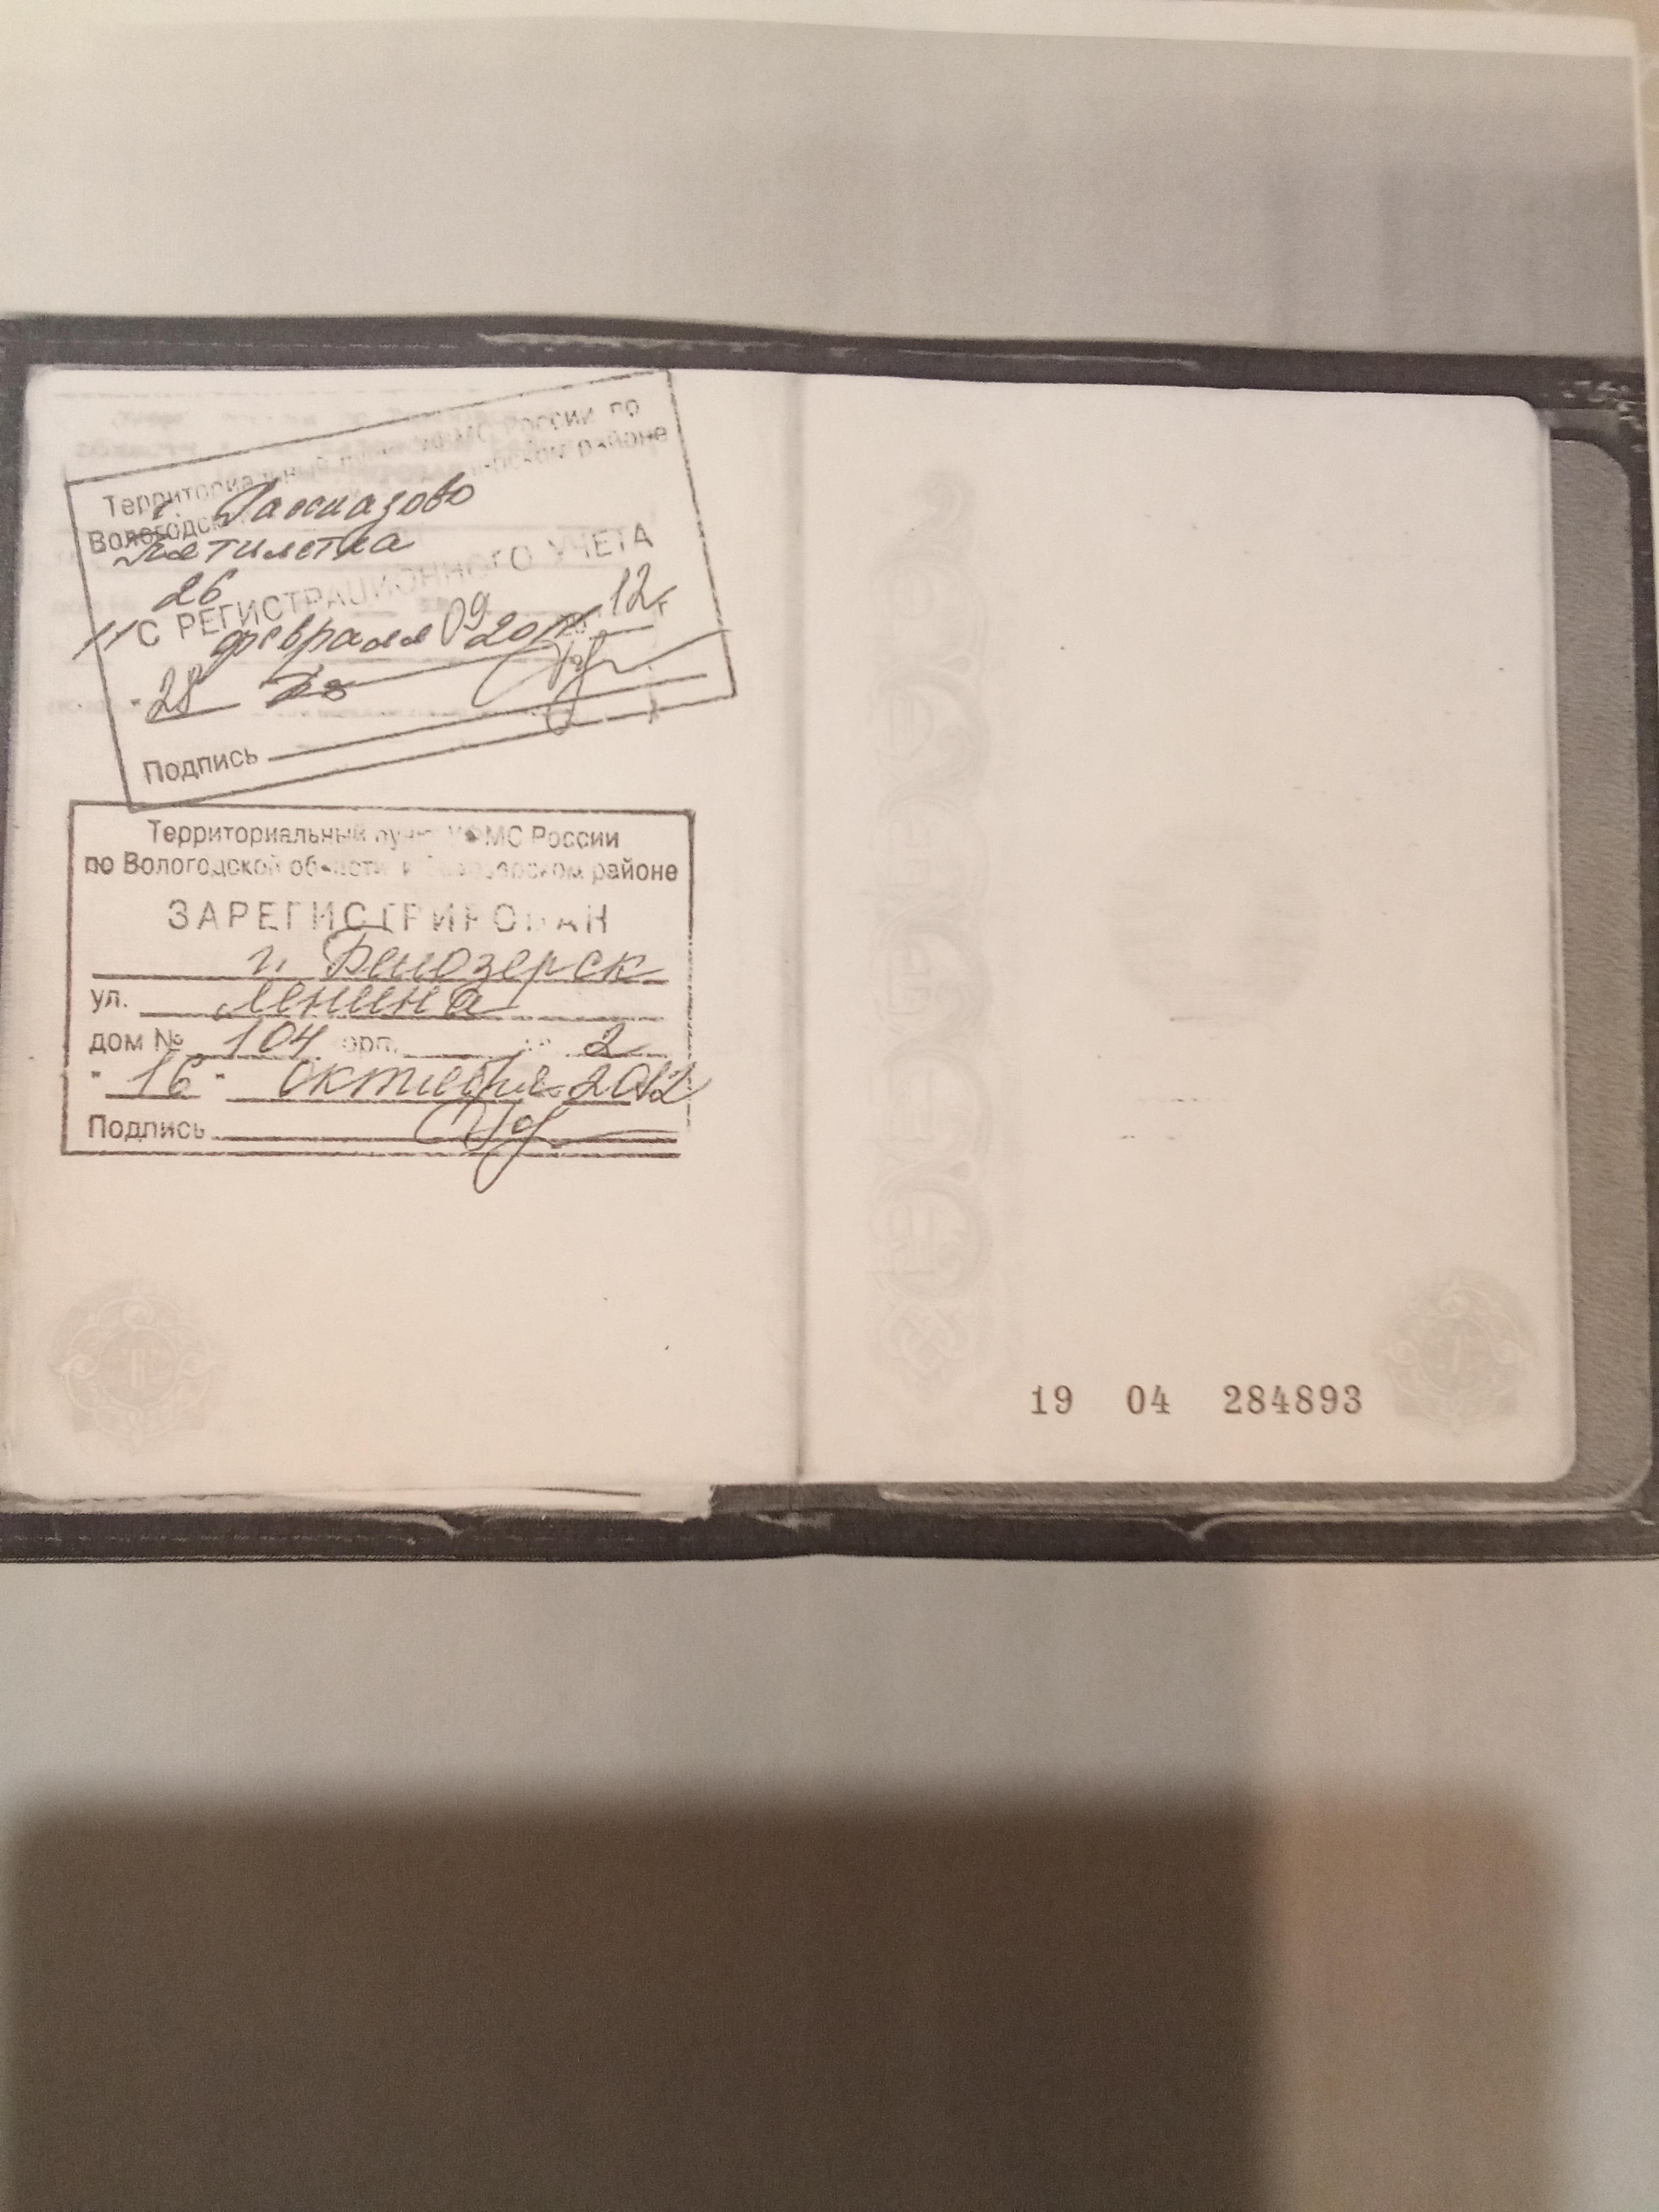 Территориальный России по
Вологодск районе
г. Рассказово
Пятилетка
26
С РЕГИСТРАЦИОННОГО УЧЕТА
февраля 09 2012г
28
Подпись
Территориальный УФМС России
по Вологодской области в районе
ЗАРЕГИСТРИРОВАН
г. Белозерск
ул. Ленина
дом № 104 орп. 2
"16" октября 2012
Подпись
19 04 284893